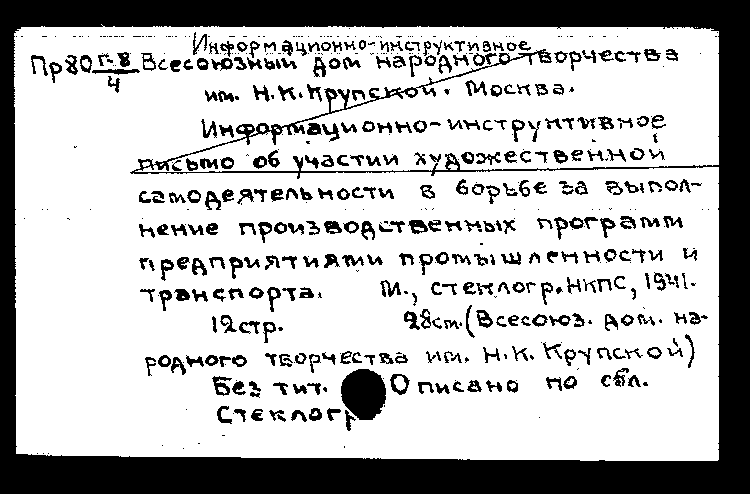 Информационно-инструктивное
Пр80 П-8/4 Всесоюзный дом народного творчества
им. Н.К.Крупской. Москва.
Информационно-инструктивное
письмо об участии художественной
самодеятельности в борьбе за выпол-
нение производственных программ
предприятиями промышленности и
транспорта. М., стеклогр.НКПС, 1941.
12стр. 28см.(Всесоюз. дом. на-
родного творчества им. Н.К. Крупской)
Без тит. Описано по обл.
Стеклогр